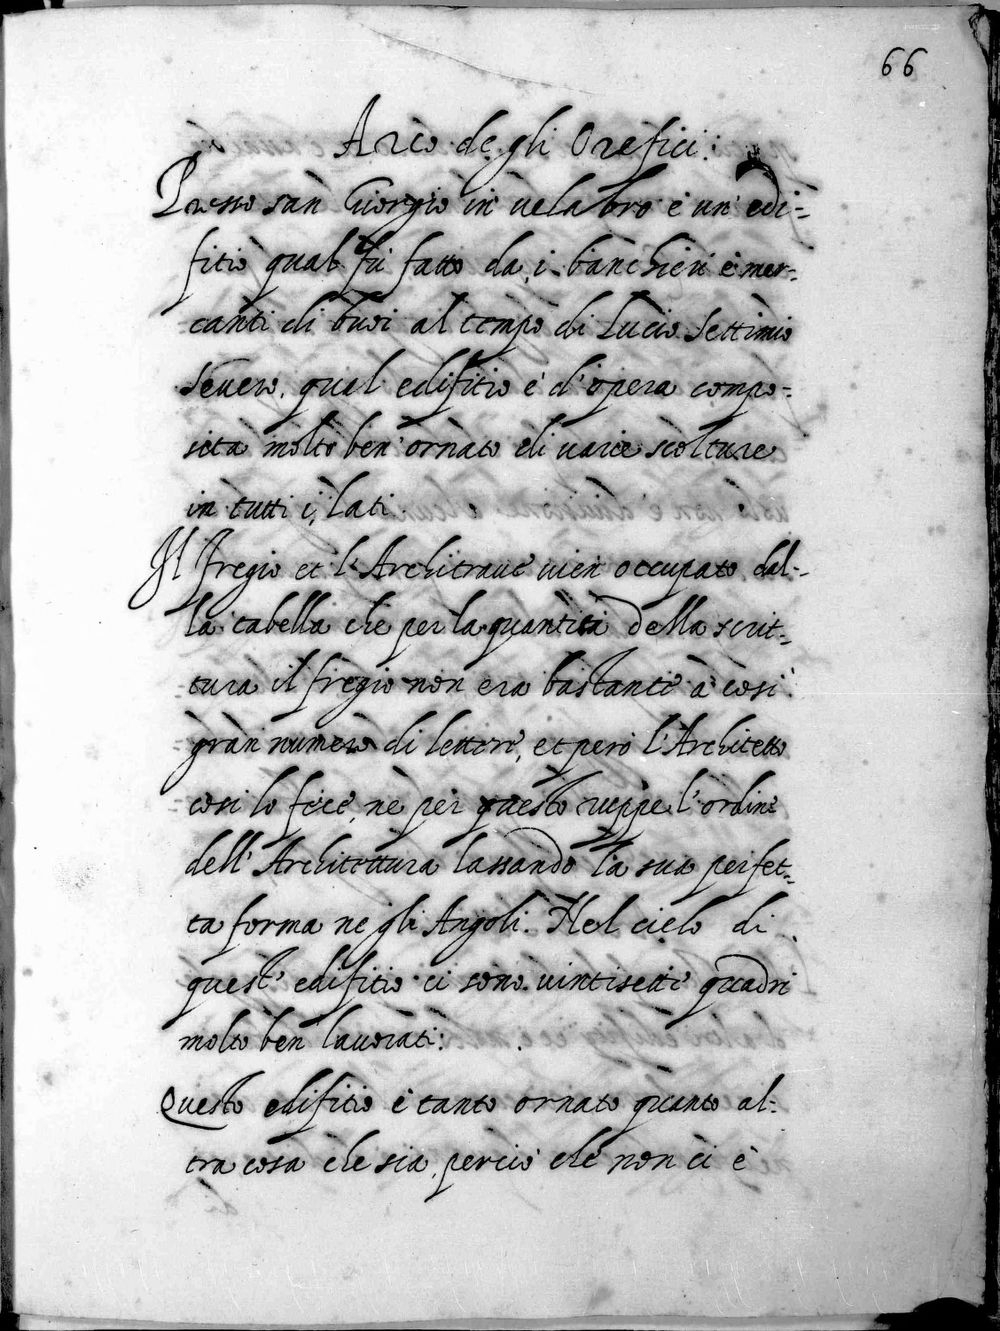 66
Arco de gli Orefici:
Presso san Giorgio in uelabro è un' edi-
fitio qual fù fatto da, i, banchieri è mer-
canti di buoi al tempo di Lucio Settimio
Seuero, qual edifitio è d'opera compo-
sita molto ben' ornato di uarie scolture
in tutti i, lati.
Il Fregio et l'Architraue uien occupato dal-
la tabella che per la quantità della scrit-
tura il fregio non era bastante à così
gran numero di lettere, et però l'Architetto
così lo fece, nè per questo ruppe l'ordine
dell' Architettura lassando la sua perfet-
ta forma ne gli Angoli. Nel cielo di
questo edifitio ci sono uintisette quadri
molto ben lauorati:
Questo edifitio è tanto ornato quanto al-
tra cosa che sia, perciò che non ci è
di